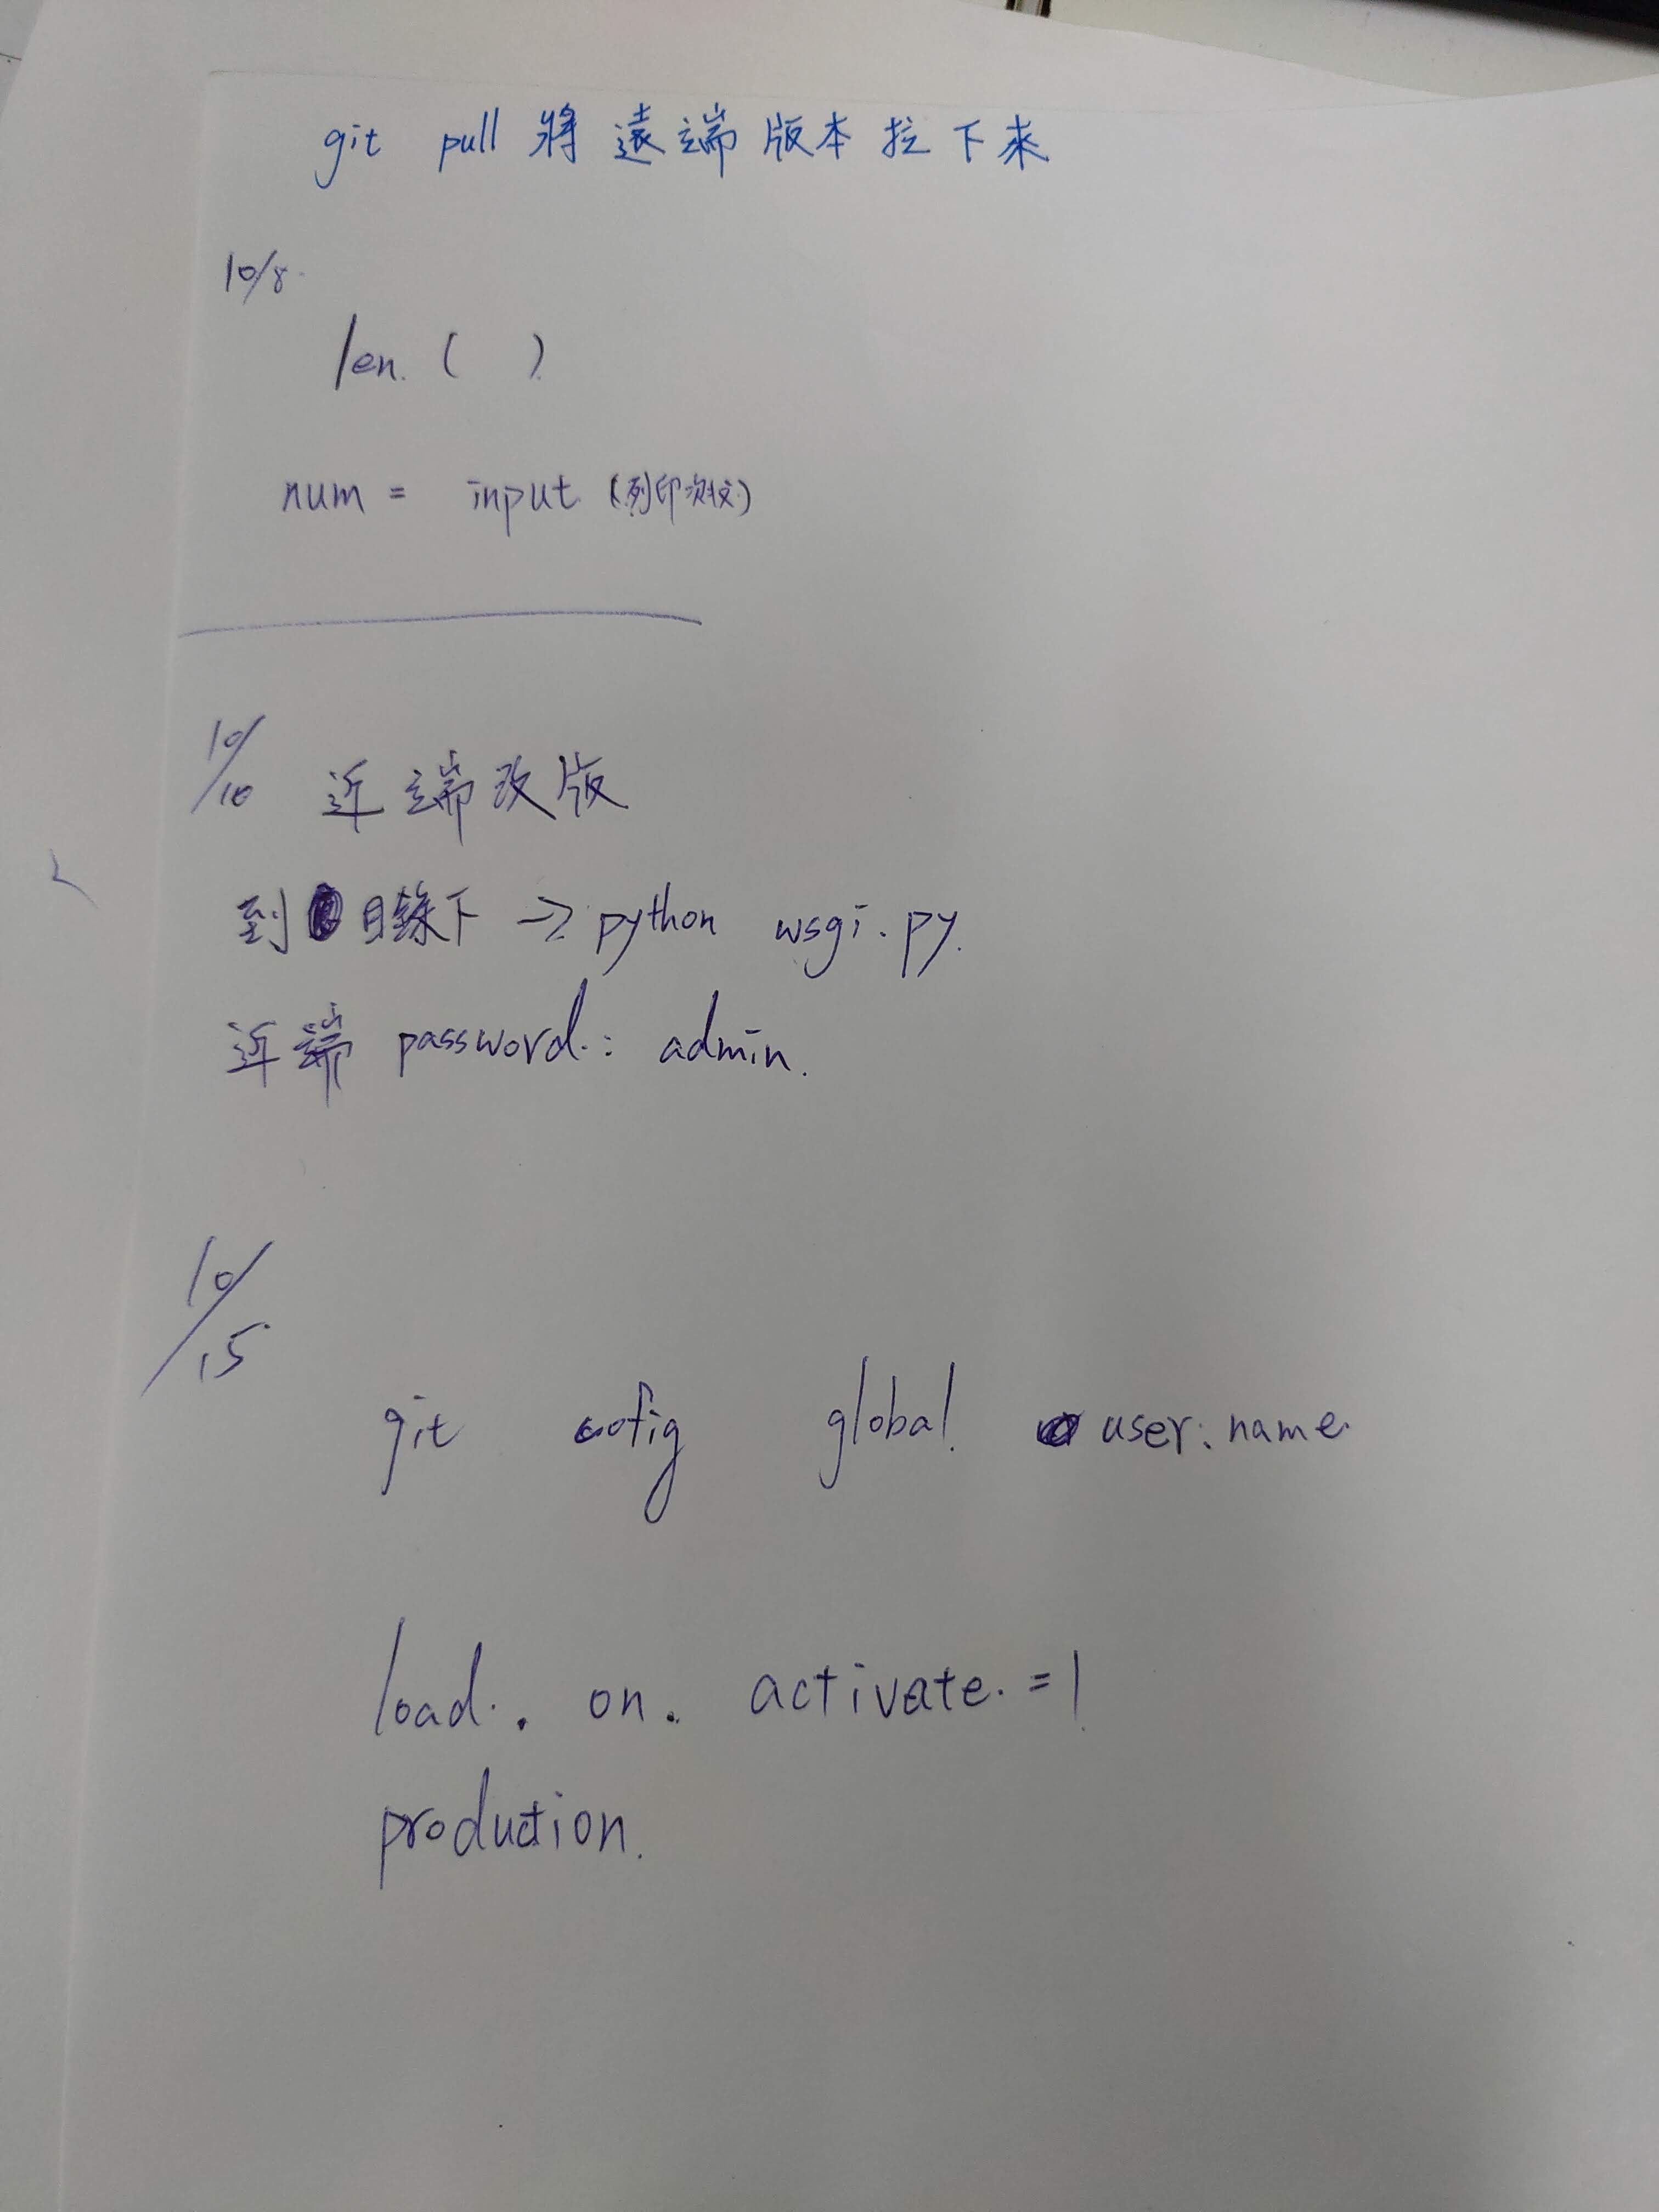 git pull 將遠端版本拉下來
10/8
len ( )
num = input (列印次数)
10/10 近端改版
到目錄下 → python wsgi.py
近端 password : admin.
10/15
git cofig global user.name
load. on. activate. =1
production.